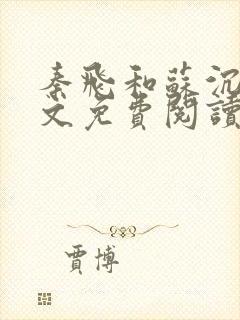 秦飛和蘇沉
文免費閱讀
賈博